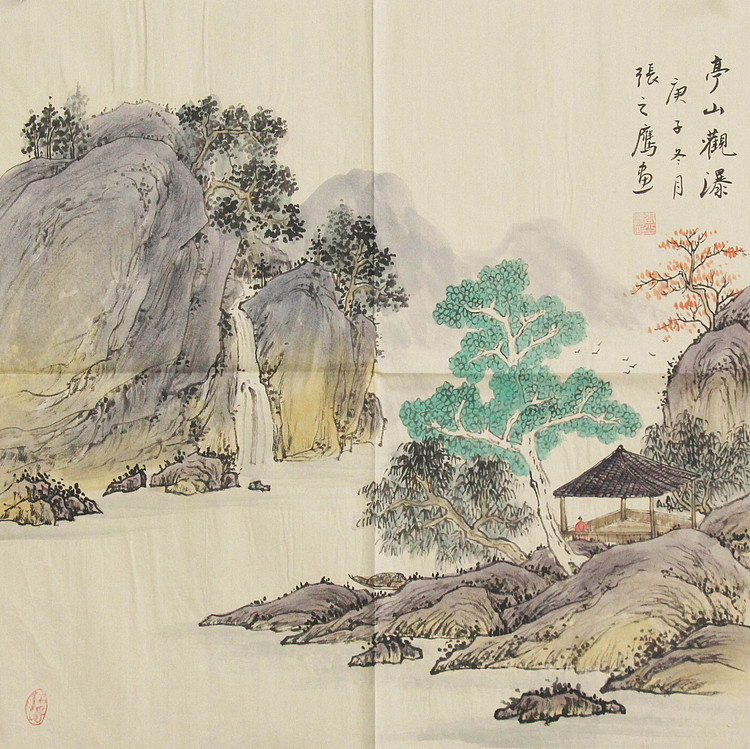 亭山觀瀑
庚子冬月
張之鹰画